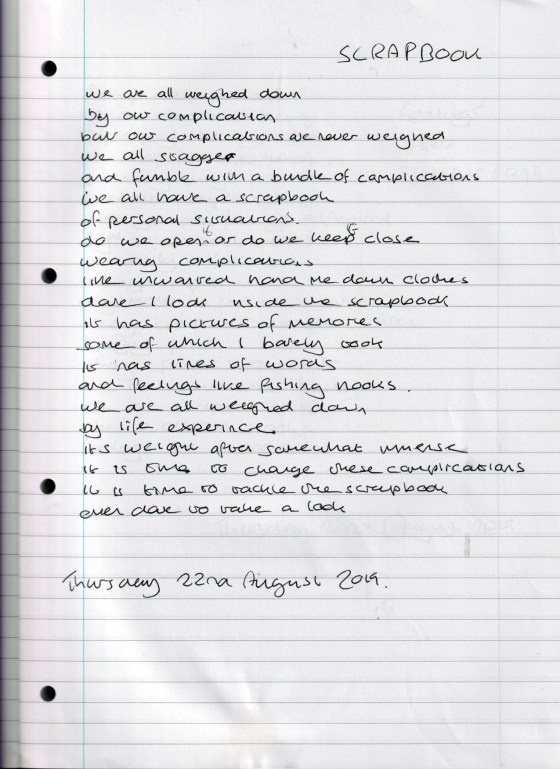 SCRAPBOOK
we are all weighed down
by our complication
but our complications are never weighed
we all stagger
and fumble with a bundle of complications
we all have a scrapbook
of personal situations.
do we open it or do we keep it close
wearing complications
like unwanted hand me down clothes
dare I look inside the scrapbook
it has pictures of memories
some of which I barely took
it has lines of words
and feelings like fishing hooks.
we are all weighed down
by life experince
it's weight after somewhat immense
it is time to change these complications
it is time to tackle the scrapbook
even dare to take a look
Thursday 22nd August 2019.